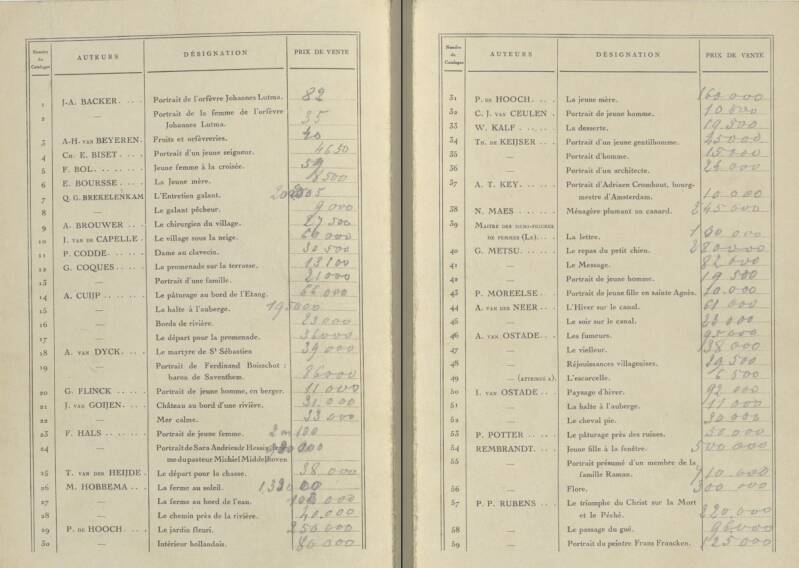 Numéro du Catalogue AUTEURS DÉSIGNATION PRIX DE VENTE
1 J.-A. BACKER. . . . Portrait de l'orfèvre Johannes Lutma. 82
2 — Portrait de la femme de l'orfèvre
Johannes Lutma. 35
3 A.-H. VAN BEYEREN. Fruits et orfèvreries. 40
4 CH. E. BISET. . . . Portrait d'un jeune seigneur. 4650
5 F. BOL. . . . . . Jeune femme à la croisée. 59
6 E. BOURSSE. . . . La Jeune mère. 8500
7 Q. G. BREKELENKAM L'Entretien galant.
8 — Le galant pêcheur. 9000
9 A. BROUWER. . . . Le chirurgien du village. 27500
10 J. VAN DE CAPELLE. Le village sous la neige. 60000
11 P. CODDE. . . . . Dame au clavecin. 30500
12 G. COQUES. . . . La promenade sur la terrasse. 13200
13 — Portrait d'une famille. 21000
14 A. CUIJP. . . . . . Le pâturage au bord de l'Etang. 66000
15 — La halte à l'auberge. 195000
16 — Bords de rivière. 23000
17 — Le départ pour la promenade. 36000
18 A. VAN DYCK. . . . Le martyre de St Sébastien 39000
19 — Portrait de Ferdinand Boisschot :
baron de Saventhem. 86000
20 G. FLINCK . . . . Portrait de jeune homme, en berger. 11000
21 J. VAN GOIJEN. . . Château au bord d'une rivière. 31.000
22 — Mer calme. 33000
23 F. HALS . . . . . Portrait de jeune femme.
24 — Portrait de Sara Andriesdr Hessix, fe-
me du pasteur Michiel Middelhoven
25 T. VAN DER HEIJDE. Le départ pour la chasse. 38000
26 M. HOBBEMA . . . La ferme au soleil.
27 — La ferme au bord de l'eau.
28 — Le chemin près de la rivière. 40.000
29 P. DE HOOCH. . . . Le jardin fleuri. 250000
30 — Intérieur hollandais. 80000
Numéro du Catalogue AUTEURS DÉSIGNATION PRIX DE VENTE
31 P. DE HOOCH. . . . La jeune mère. 160000
32 C. J. VAN CEULEN . Portrait de jeune homme. 10500
33 W. KALF . . . . . La desserte. 19.500
34 TH. DE KEIJSER . . Portrait d'un jeune gentilhomme. 25000
35 — Portrait d'homme. 15000
36 — Portrait d'un architecte. 26000
37 A. T. KEY. . . . . Portrait d'Adriaen Cromhout, bourg-
mestre d'Amsterdam. 10000
38 N. MAES . . . . . Ménagère plumant un canard. 245000
39 MAITRE DES DEMI-FIGURES
DE FEMMES (LE). . . La lettre. 160000
40 G. METSU. . . . . Le repas du petit chien. 220000
41 — Le Message. 82000
42 — Portrait de jeune homme. 19500
43 P. MOREELSE . . . Portrait de jeune fille en sainte Agnès. 10.000
44 A. VAN DER NEER. . L'Hiver sur le canal. 61000
45 — Le soir sur le canal. 23000
46 A. VAN OSTADE. . . Les fumeurs. 95000
47 — Le vielleur. 138000
48 — Réjouissances villageoises. 30500
49 — (ATTRIBUÉ A). L'escarcelle. 6500
50 I. VAN OSTADE . . . Paysage d'hiver. 92000
51 — La halte à l'auberge. 11000
52 — Le cheval pie. 30000
53 P. POTTER . . . . Le pâturage près des ruines. 30000
54 REMBRANDT. . . . Jeune fille à la fenêtre. 500000
55 — Portrait présumé d'un membre de la
famille Raman. 110000
56 — Flore. 300000
57 P. P. RUBENS. . . . Le triomphe du Christ sur la Mort
et le Péché. 220000
58 — Le passage du gué. 96000
59 — Portrait du peintre Frans Francken. 125000